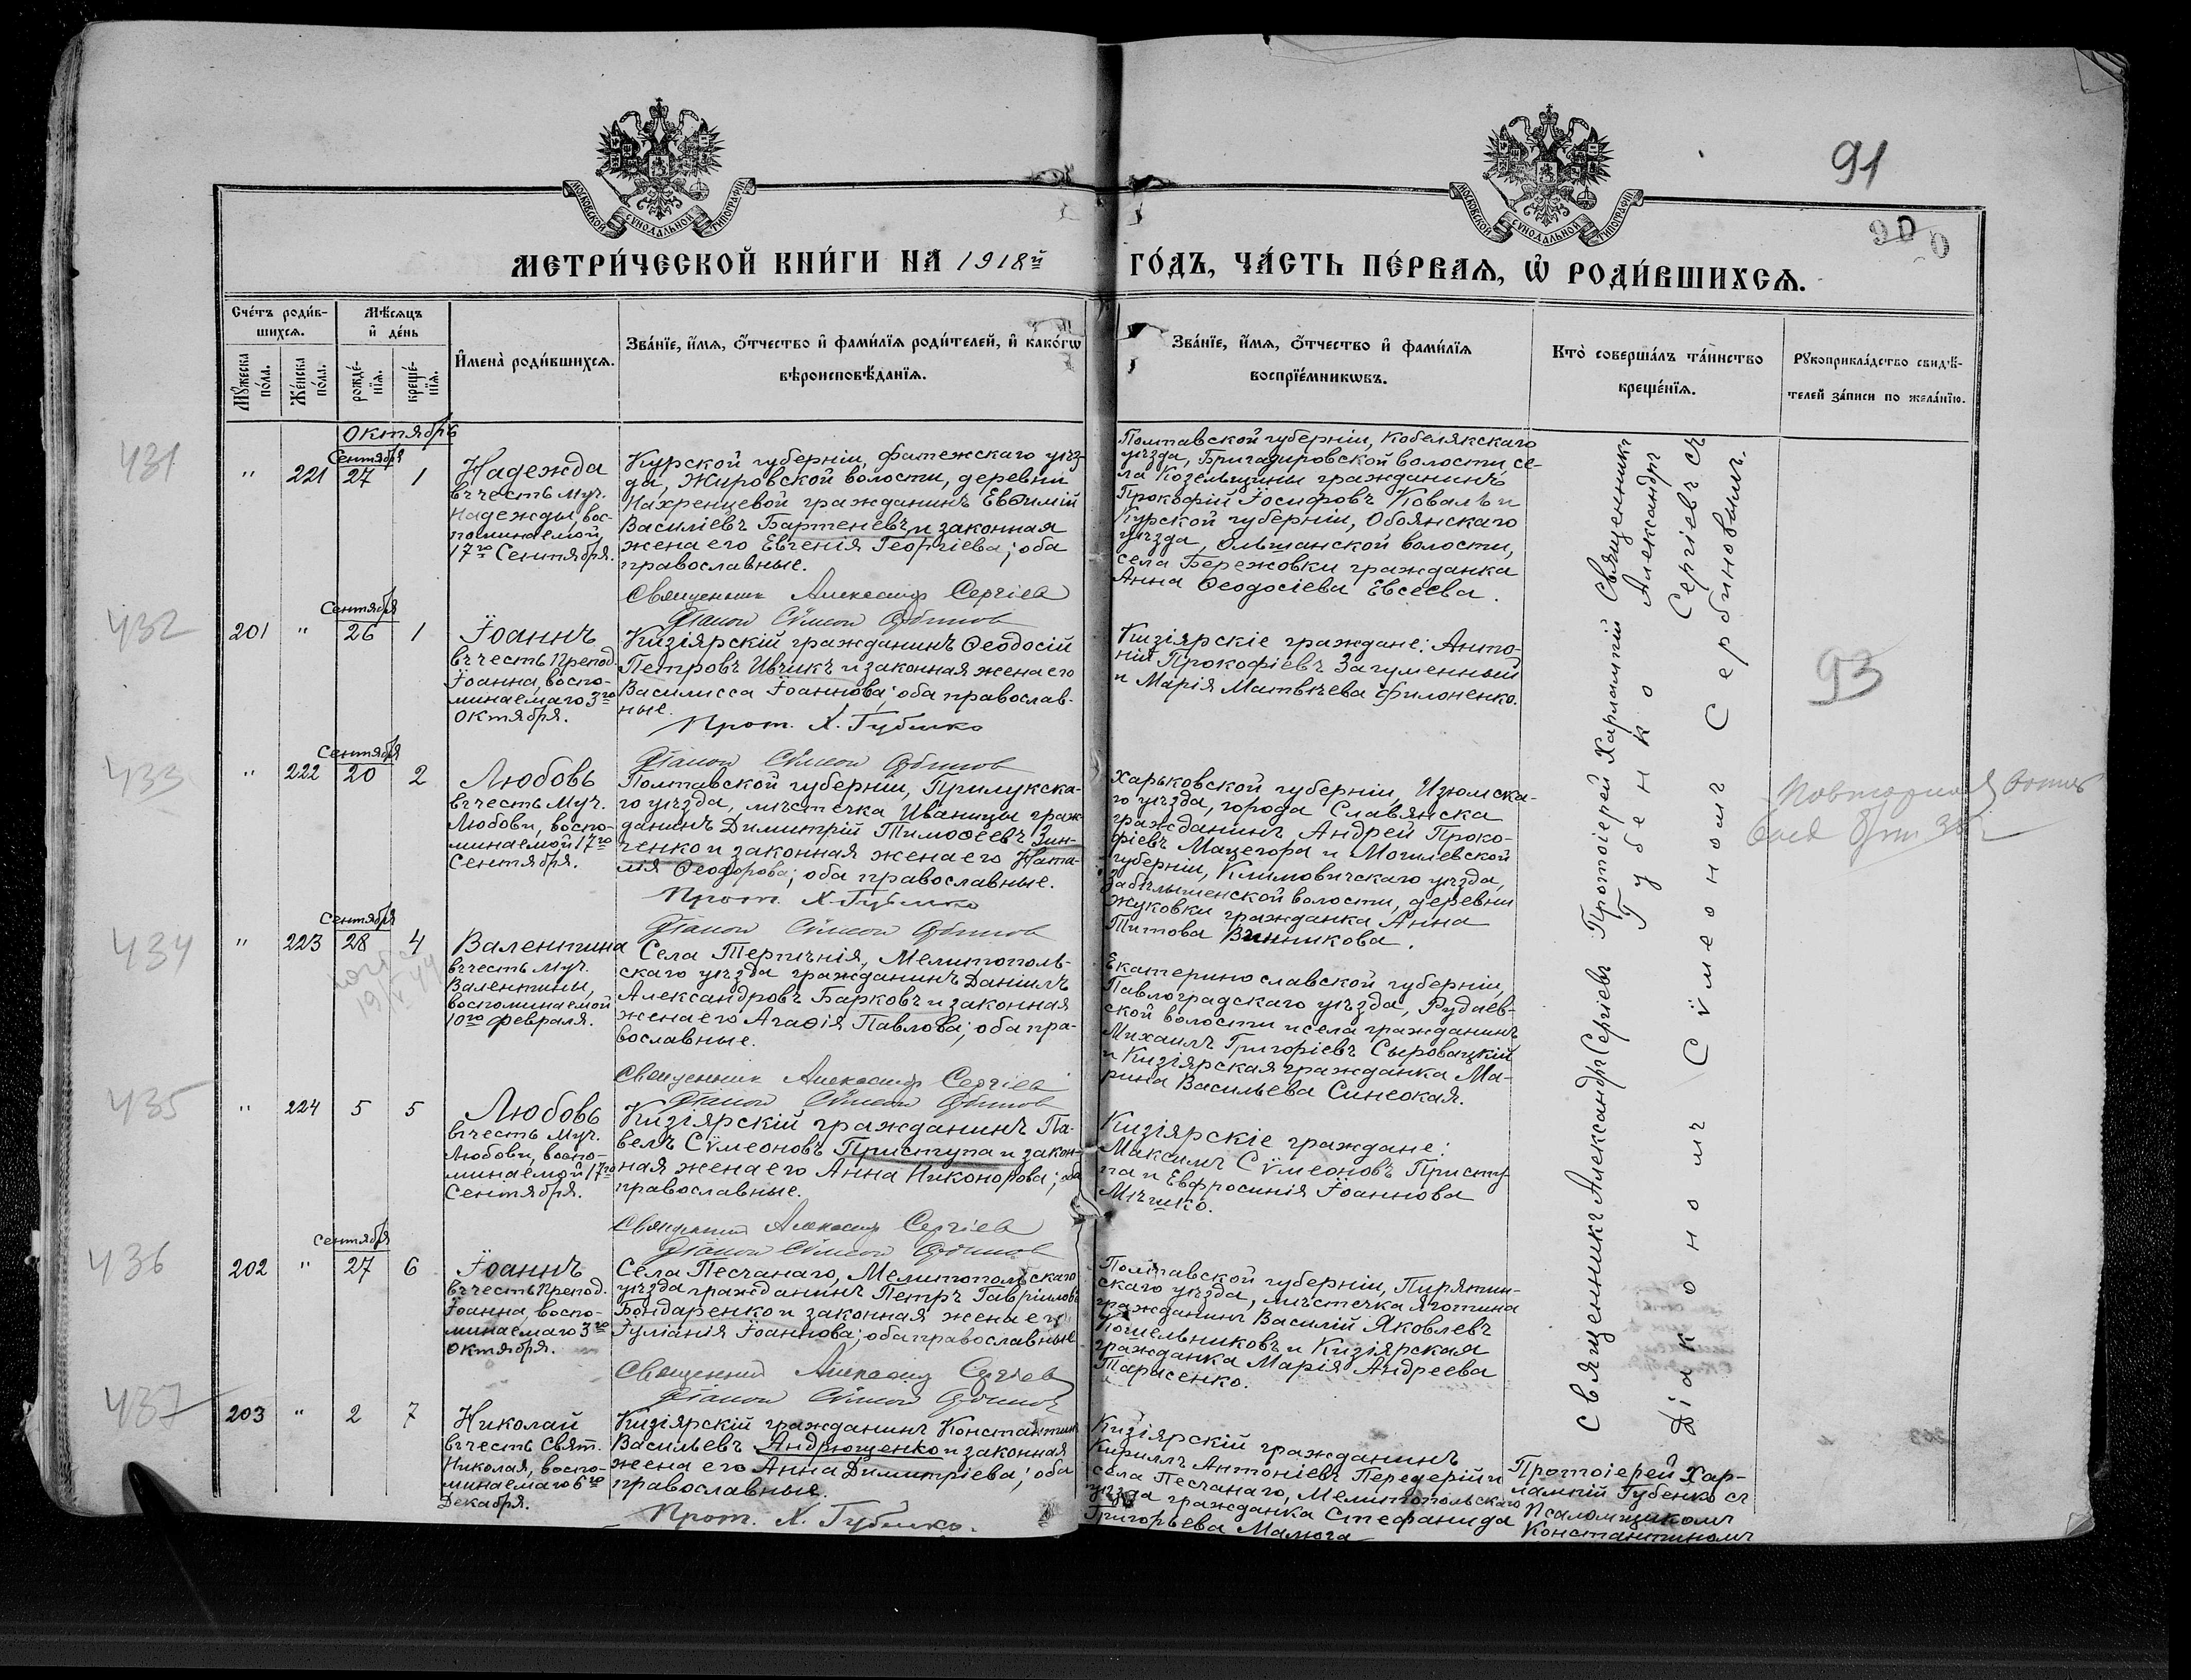 91
90
0
МОСКОВСКОЙ СѴНОДАЛЬНОЙ ТИПОГРАФІИ
МОСКОВСКОЙ СѴНОДАЛЬНОЙ ТИПОГРАФІИ
МЕТРИ́ЧЕСКОЙ КНИ́ГИ НА 1918й ГО́ДЪ, ЧА́СТЬ ПЕ́РВАЯ, Ѡ РОДИ́ВШИХСЯ.
Сче́тъ роди́в-
шихся.
Мꙋ́жеска по́ла.
Же́нска по́ла.
Мѣ́сяцъ
и҆ де́нь
рожде́-
нїя.
креще́-
нїя.
И҆мена̀ роди́вшихся.
Зва́нїе, и҆́мя, ѻ҆́тчество и҆ фами́лїя роди́телей, и҆ како́гѡ
вѣроисповѣ́данїя.
Зва́нїе, и҆́мя, ѻ҆́тчество и҆ фами́лїя
воспрїе́мникѡвъ.
Кто̀ соверша́лъ та́инство
креще́нїя.
Рꙋкоприкла́дство свидѣ́-
телей за́писи по жела́нїю.
Октябрь
431
"
221
Сентября
27
1
Надежда
въ честь Муч.
Надежды, вос-
поминаемой
17го Сентября.
Курской губерніи, Фатежскаго уѣз-
да, Жировской волости, деревни
Нахренцевой гражданинъ Евѳимій
Василіевъ Бартеневъ и законная
жена его Евгенія Георгіева; оба
православные.
Священник Александр Сергіев
Діакон Сѵмеон
Полтавской губерніи, Кобелякскаго
уѣзда, Бригадировской волости, се-
ла Козельщины гражданинъ
Прокофій Іосифовъ Коваль и
Курской губерніи, Обоянскаго
уѣзда, Ольшанской волости,
села Бережовки гражданка
Анна Ѳеодосіева Евсеева.
432
201
"
Сентября
26
1
Іоаннъ
въ честь Препод.
Іоанна, воспо-
минаемаго 3го
Октября.
Кизіярскій гражданинъ Ѳеодосій
Петровъ Ивчикъ и законная жена его
Василисса Іоаннова; оба православ-
ные.
Прот. Х. Губенко
Діакон Сѵмеон
Кизіярскіе граждане: Анто-
ній Прокофіевъ Загуменный
и Марія Матвѣева Филоненко.
93
433
"
222
Сентября
20
2
Любовь
въ честь Муч.
Любови, воспо-
минаемой 17го
Сентября.
Полтавской губерніи, Прилукска-
го уѣзда, мѣстечка Иваницы граж-
данинъ Димитрій Тимоѳеевъ Зин-
ченко и законная жена его Ната-
лія Ѳеодорова; оба православные.
Прот. Х. Губенко
Діакон Сѵмеон
Харьковской губерніи, Изюмска-
го уѣзда, города Славянска
гражданинъ Андрей Проко-
фіевъ Мацегора и Могилевской
губерніи, Климовичскаго уѣзда,
Забѣлышенской волости, деревни
Жуковки гражданка Анна
Титова Винникова.
434
"
223
Сентября
28
4
Валентина
въ честь Муч.
Валентины,
воспоминаемой
10го Февраля.
Села Терпѣнія, Мелитополь-
скаго уѣзда гражданинъ Даніилъ
Александровъ Барковъ и законная
жена его Агаѳія Павлова; оба пра-
вославные.
Священник Александр Сергіев
Діакон Сѵмеон
Екатеринославской губерніи,
Павлоградскаго уѣзда, Рудаев-
ской волости и села гражданинъ
Михаилъ Григоріевъ Сыровацкій
и Кизіярская гражданка Ма-
рина Васильева Синеокая.
435
"
224
5
5
Любовь
въ честь Муч.
Любови, воспо-
минаемой 17го
Сентября.
Кизіярскій гражданинъ Па-
велъ Сѵмеоновъ Приступа и закон-
ная жена его Анна Никонорова; оба
православные.
Священник Александр Сергіев
Діакон Сѵмеон
Кизіярскіе граждане:
Максимъ Сѵмеоновъ Присту-
па и Евфросинія Іоаннова
436
202
"
Сентября
27
6
Іоаннъ
въ честь Препод.
Іоанна, воспо-
минаемаго 3го
Октября.
Села Песчанаго, Мелитопольскаго
уѣзда гражданинъ Петръ Гавріиловъ
Бондаренко и законная жена его
Іуліанія Іоаннова; оба православные
Священник Александр Сергіев
Діакон Сѵмеон
Полтавской губерніи, Пирятин-
скаго уѣзда, мѣстечка Яготина
гражданинъ Василій Яковлевъ
Кошельниковъ и Кизіярская
гражданка Марія Андреева
Тарасенко.
437
203
"
2
7
Николай
въ честь Свят.
Николая, воспо-
минаемаго 6го
Декабря.
Кизіярскій гражданинъ Константинъ
Васильевъ Андрющенко и законная
жена его Анна Димитріева; оба
православные.
Прот. Х. Губенко.
Кизіярскій гражданинъ
Кириллъ Антоніевъ Передерій и
села Песчанаго, Мелитопольскаго
уѣзда гражданка Стефанида
Григорьева Малюга
Священникъ Александръ Сергіевъ Протоіерей Харлампій Священникъ
Губенко Александръ
Сергіевъ съ
Діакономъ Сѵмеономъ Сербиновымъ.
Протоіерей Хар-
лампій Губенко съ
Псаломщикомъ
Константиномъ